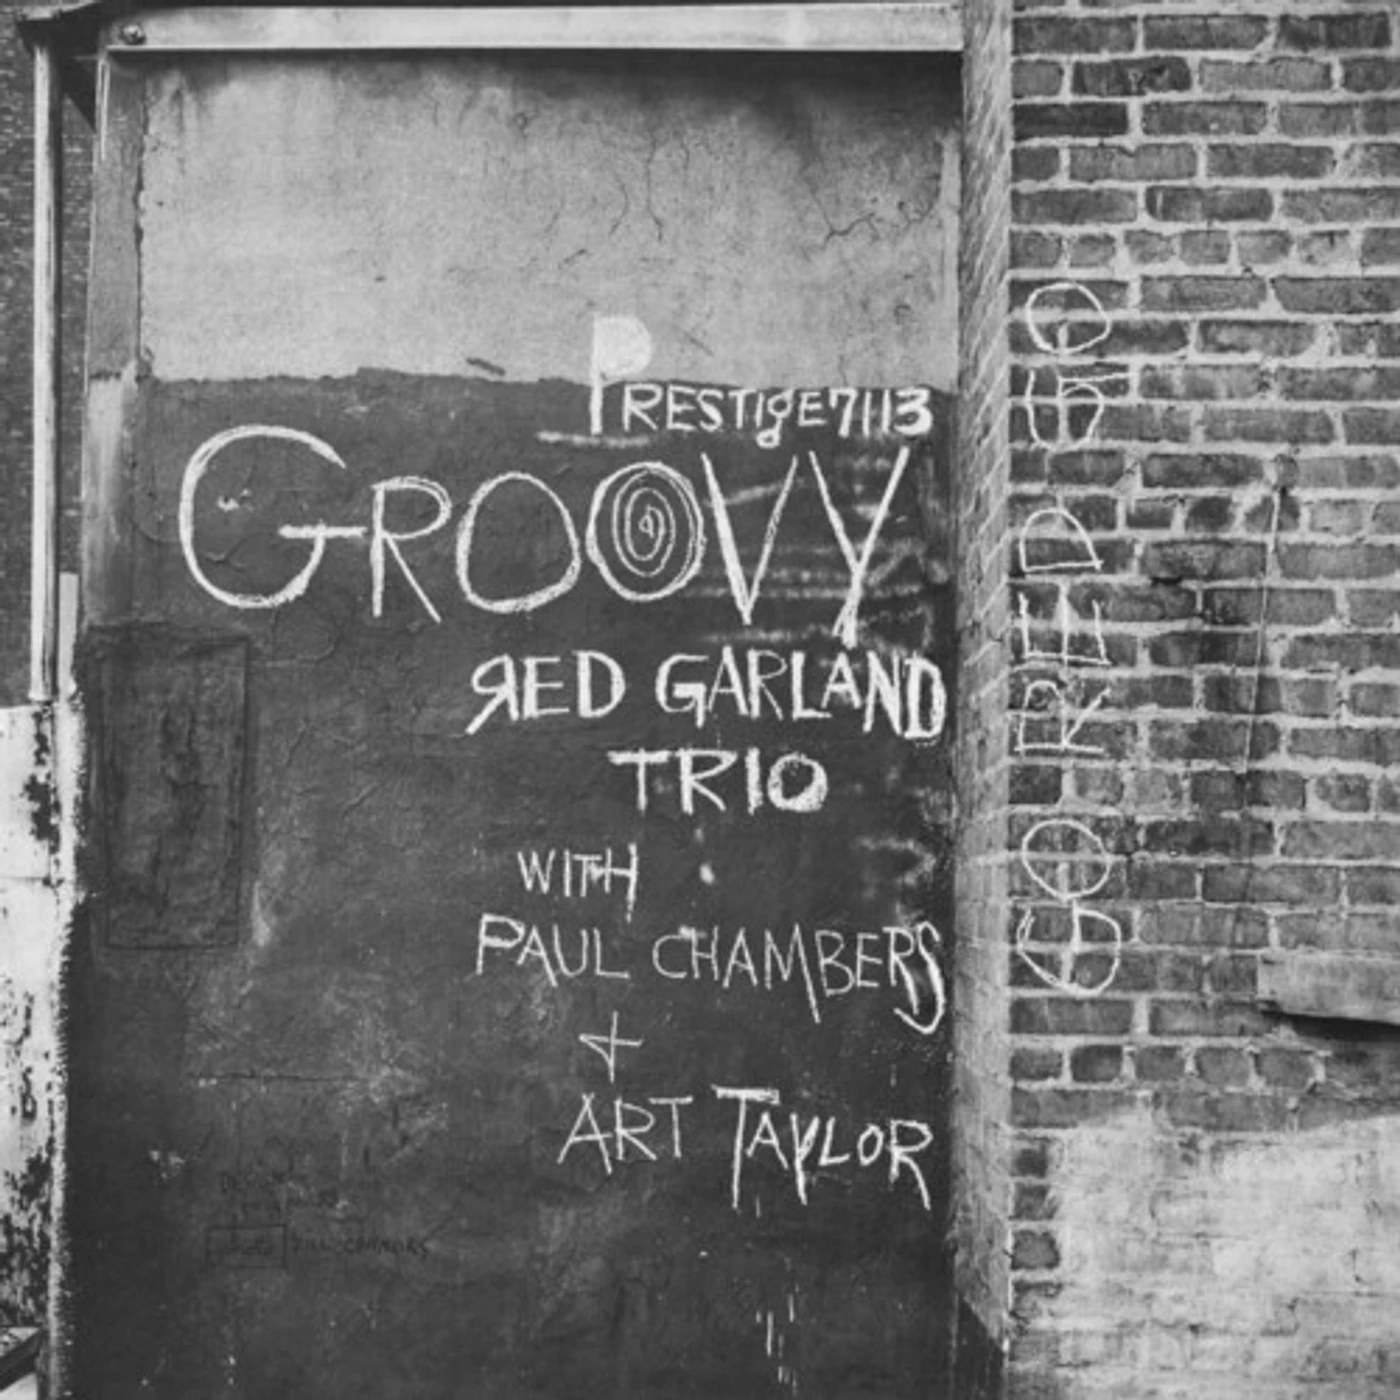 PRESTIgE7113
GROOVY
RED GARLAND
TRIO
WITH
PAUL CHAMBERS
+
ART TAYLOR
GO RED GO